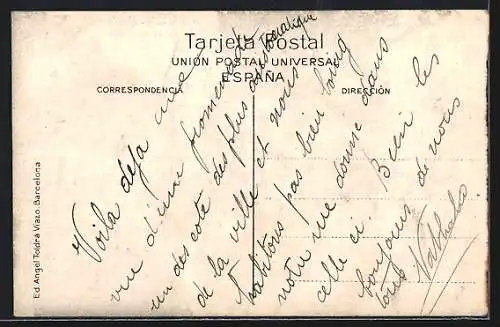 Tarjeta Postal
UNION POSTAL UNIVERSAL
ESPAÑA
CORRESPONDENCIA
DIRECCIÓN
Ed. Angel Toldrá Viazo. Barcelona
Voila deja une
vue d'une promenade
un des coté des plus aristocratique
de la ville et nous
habitons pas bien loing
notre rue donne dans
celle ci. Bien les
bonjours de nous
tous Nathalie